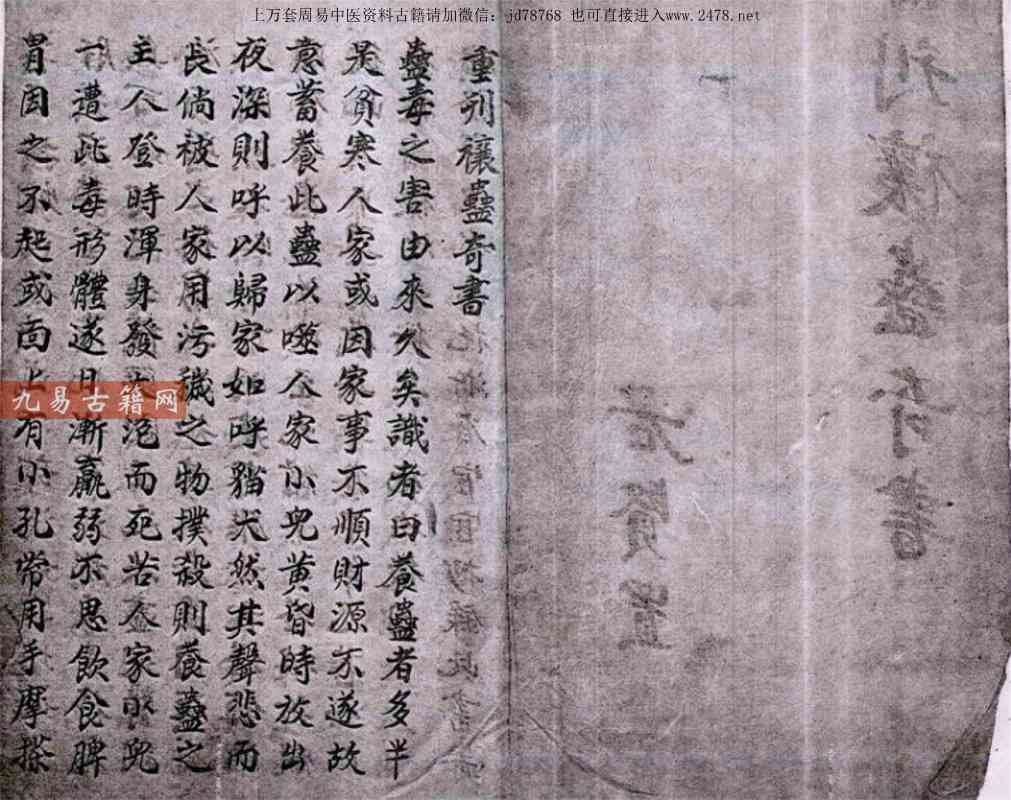 上万套周易中医资料古籍请加微信：jd78768 也可直接进入www.2478.net
重刋禳蠱奇書
蠱毒之害由來久矣識者曰養蠱者多半
是貧寒人家或因家事不順財源不遂故
意蓄養此蠱以噬人家小兒黄昏時放出
夜深則呼以歸家如呼猫犬然其聲悲而
長倘被人家用污穢之物撲殺則養蠱之
主人登時渾身發大泡而死苦人家小兒
一遭此毒形體遂日漸羸弱不思飲食脾
胃因之不起或面上有小孔常用手摩搽
九易古籍网
刋禳蠱奇書